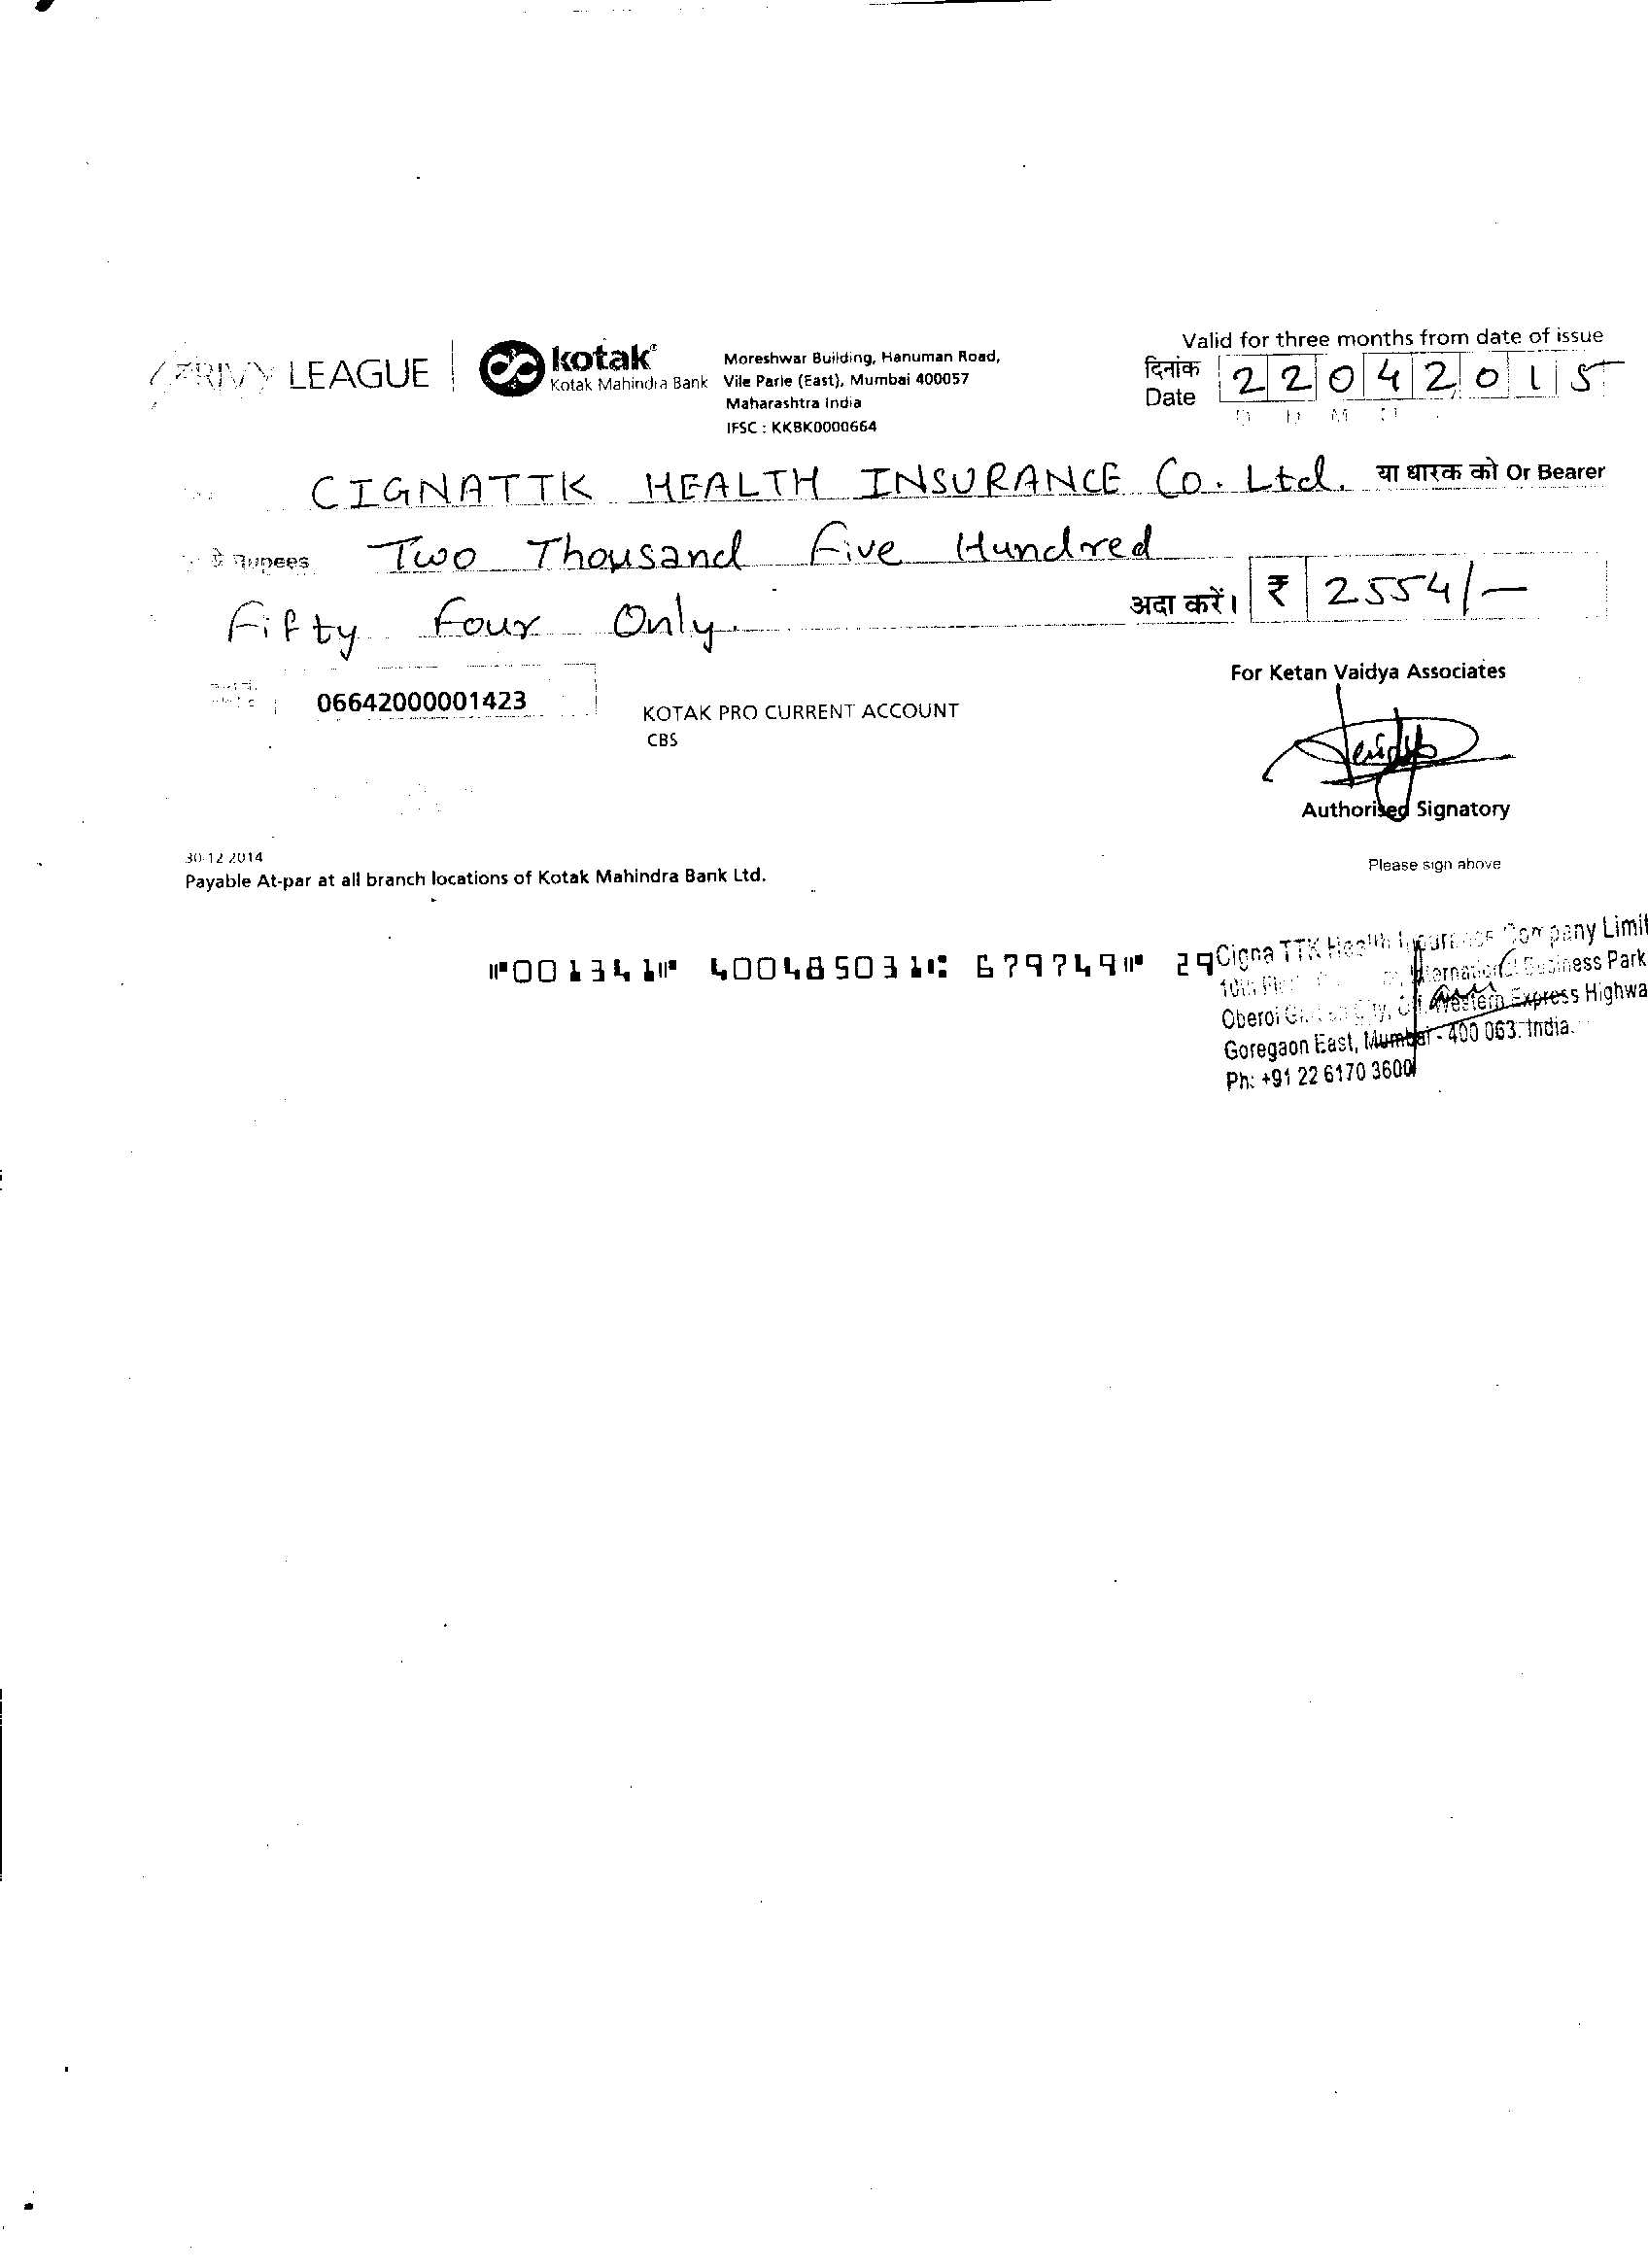 PRIVY LEAGUE
kotak
Kotak Mahindra Bank
Moreshwar Building, Hanuman Road,
Vile Parle (East), Mumbai 400057
Maharashtra India
IFSC : KKBK0000664
Valid for three months from date of issue
दिनांक
Date
22042015
D D M M
CIGNATTK HEALTH INSURANCE Co. Ltd. या धारक को Or Bearer
Rupees Two Thousand Five Hundred
Fifty Four Only.
अदा करें। ₹ 2554/-
06642000001423
KOTAK PRO CURRENT ACCOUNT
CBS
For Ketan Vaidya Associates
Authorised Signatory
Please sign above
30-12-2014
Payable At-par at all branch locations of Kotak Mahindra Bank Ltd.
⑈001341⑈ 400485031⑆ 679749⑈ 29
Cigna TTK Health Insurance Company Limit
10th International Business Park
Oberoi Garden City, Off. Western Express Highwa
Goregaon East, Mumbai - 400 063. India.
Ph: +91 22 6170 3600